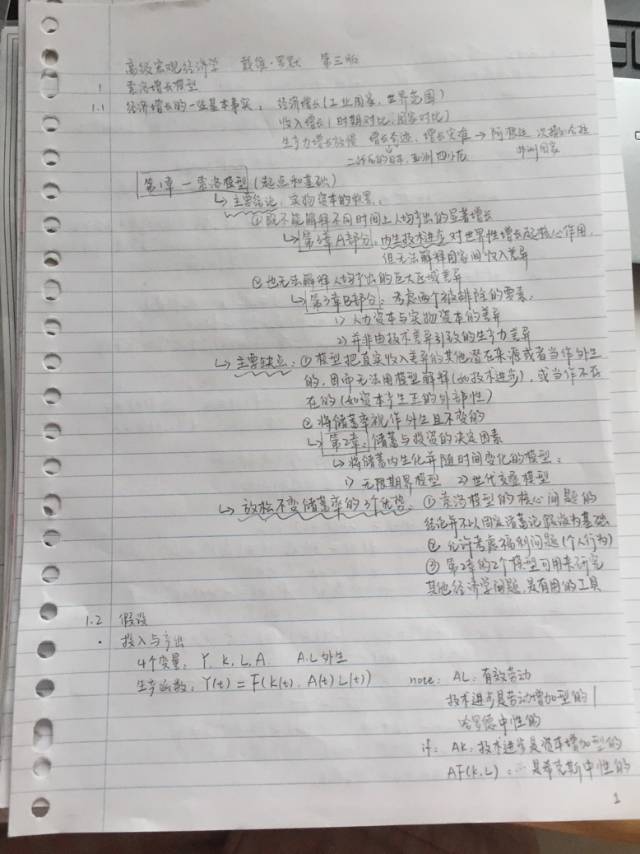 高级宏观经济学 戴维·罗默 第三版
1 索洛增长模型
1.1 经济增长的一些基本事实: 经济增长(工业国家,世界范围)
收入增长(时期对比;国家对比)
生产力增长放慢 增长奇迹,增长灾难 → 阿根廷 次撒哈拉
二战后的日本,亚洲四小龙 非洲国家
第1章 — 索洛模型(起点和基础)
↳ 主要结论:实物资本的积累:
①既不能解释不同时间上人均产出的显著增长
↳ 第3章A部分:内生技术进步对世界性增长起核心作用,
但无法解释国家间收入差异
②也无法解释人均产出的巨大区域差异
↳ 第3章B部分:考虑两个被排除的要素:
1) 人力资本与实物资本的差异
2) 并非由技术差异引致的生产力差异
↳ 主要缺点:①模型把真实收入差异的其他潜在来源或者当作外生
的,因而无法用模型解释(如技术进步),或当作不存
在的(如资本产生正的外部性)
②将储蓄率视作外生且不变的
↳ 第2章:储蓄与投资的决定因素
↳ 将储蓄内生化并随时间变化的模型:
1) 无限期界模型 2) 世代交叠模型
↳ 放松不变储蓄率的3个优势:①索洛模型的核心问题的
结论并不以固定储蓄论假设为基础
②允许考虑福利问题(个人行为)
③第2章的2个模型可用来研究
其他经济学问题,是有用的工具
1.2 假设
· 投入与产出
4个变量: Y. K. L. A A.L 外生
生产函数: Y(t) = F(K(t). A(t)L(t)) note: AL: 有效劳动
技术进步是劳动增加型的/
哈罗德中性的
if: AK: 技术进步是资本增加型的
AF(K.L): ~ 是希克斯中性的
1